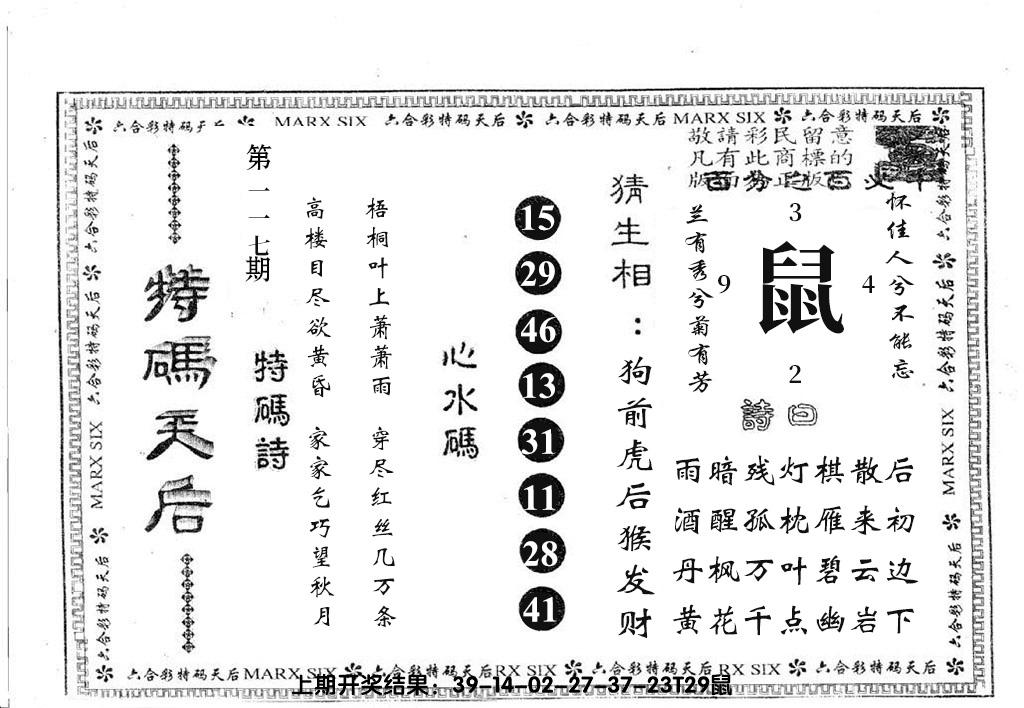 六合彩特码天后 MARX SIX 六合彩特码天后 六合彩特码天后 MARX SIX 六合彩特码天后
敬請彩民留意
凡有此商標的
版面为正版
猜生相：狗前虎后猴发财
怀佳人兮不能忘
兰有秀兮菊有芳
3
9 鼠 4
2
詩曰
雨暗残灯棋散后
酒醒孤枕雁来初
丹枫万叶碧云边
黄花千点幽岩下
15
29
46
13
31
11
28
41
心水碼
梧桐叶上萧萧雨 穿尽红丝几万条
高楼目尽欲黄昏 家家乞巧望秋月
特碼詩
第一一七期
特碼天后
六合彩特码天后 六合彩特码天后 MARX SIX 六合彩特码天后
六合彩特码天后 六合彩特码天后 MARX SIX 六合彩特码天后
六合彩特码天后 MARX SIX 六合彩特码天后 RX SIX 六合彩特码天后 RX SIX 六合彩特码天后
上期开奖结果：39-14-02-27-37-23T29鼠